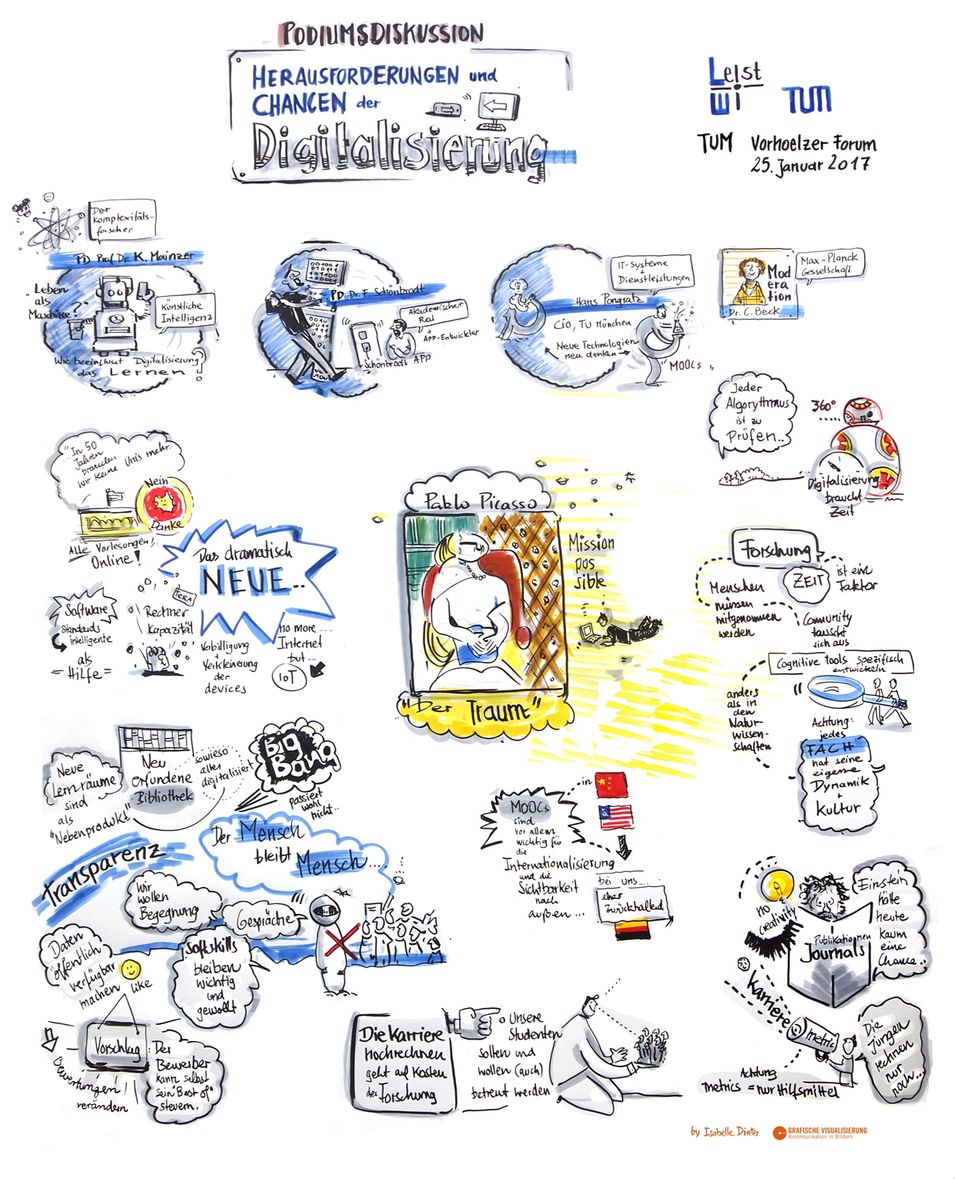 PODIUMSDISKUSSION
HERAUSFORDERUNGEN und
CHANCEN der
Digitalisierung
Leist
Wi TUM
TUM Vorhoelzer Forum
25. Januar 2017
Der
Komplexitäts-
forscher
PD Prof. Dr. K. Mainzer
Leben
als
Maschine?
Künstliche
Intelligenz
Wie beeinflusst Digitalisierung
das Lernen?
PD Dr. F. Schönbrodt
Akademischer
Rat
+
APP-Entwickler
Schönbrodt APP
IT-Systeme
+
Dienstleistungen
Hans Pongratz
CiO, TU München
Neue Technologien
neu denken
"MOOCs"
Mod
era
tion
Dr. C. Beck
Max-Planck
Gesellschaft
Jeder
Algorythmus
ist zu
Prüfen..
360°
Digitalisierung
braucht
Zeit
"In 50
Jahren
brauchen
wir keine Unis mehr"
Nein
Danke
Alle Vorlesungen
Online!
Das dramatisch
NEUE...
Software
Standards
intelligente
als
= Hilfe =
Rechner
Kapazität
TERA
Verbilligung
+
Verkleinerung
der
devices
no more...
Internet
but...
IoT
Pablo Picasso
"Der Traum"
Mission
pos
sible
Forschung
ZEIT
ist ein
Faktor
Menschen
müssen
mitgenommen
werden
Community
tauscht
sich aus
Cognitive Tools spezifisch
entwickeln
anders
als in
den
Natur-
wissen-
schaften
Achtung:
jedes
FACH
hat seine
eigene
Dynamik
+
Kultur
Neue
Lernräume
sind
als
"Nebenprodukt"
Neu
erfundene
Bibliothek
sowieso
alles
digitalisiert
Big
Bang
passiert
wohl
nicht...
Transparenz
Der Mensch
bleibt
Mensch....
Wir
wollen
Begegnung
Gespräche
Softskills
bleiben
wichtig
und
gewollt
Daten
öffentlich
verfügbar
machen
like
Vorschlag:
Der
Bewerber
kann selbst
sein "Best of"
steuern.
Bewertungen!
verändern
MOOCs
sind
vor allem
wichtig für
die
Internationalisierung
und die
Sichtbarkeit
nach
außen...
in
bei uns...
eher
zurückhaltend
no
creativity
Publikationen
Journals
Einstein
hätte
heute
kaum
eine
Chance..
Karriere
metric
Achtung
metrics = nur Hilfsmittel
Die
Jungen
rechnen
nur
noch...
Die Karriere
hochrechnen
geht auf Kosten
der Forschung
Unsere
Studenten
sollen und
wollen (auch)
betreut werden
by Isabelle Dinter
GRAFISCHE VISUALISIERUNG
Kommunikation in Bildern